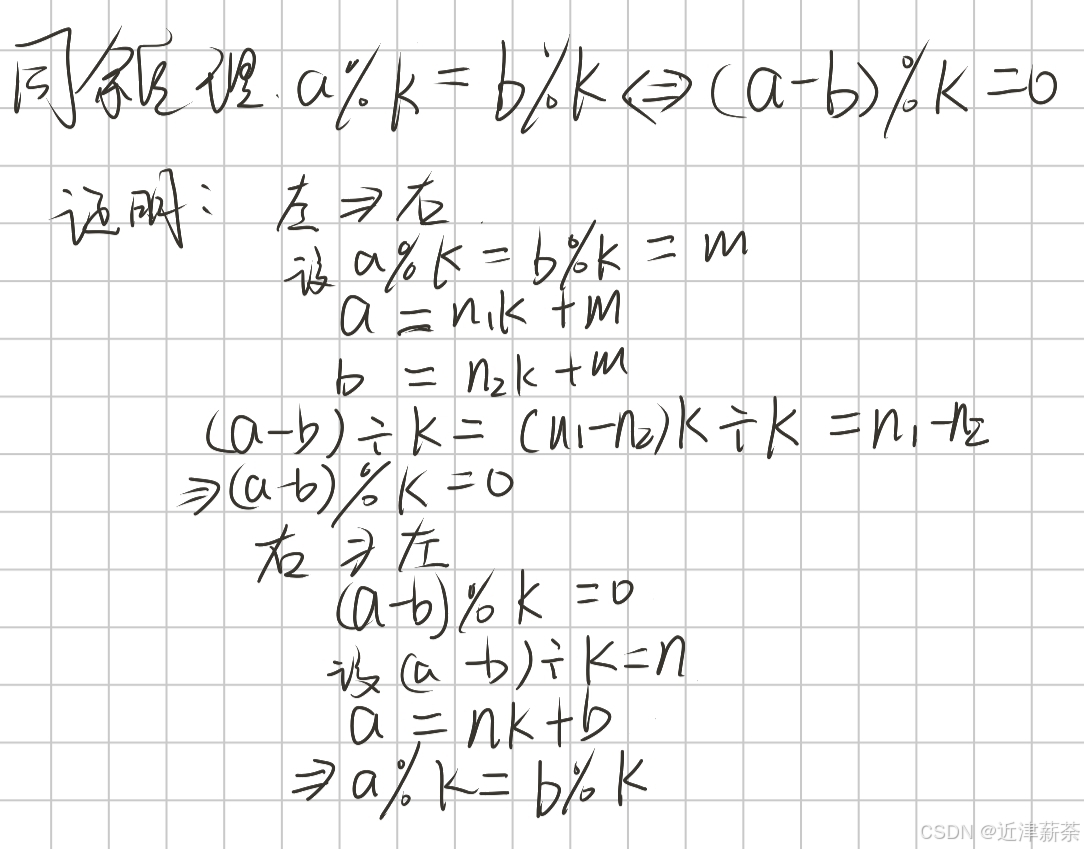 同余定理. a%k = b%k <=> (a-b)%k = 0
证明: 左 => 右.
设 a%k = b%k = m
a = n₁k + m
b = n₂k + m
(a-b) ÷ k = (n₁-n₂)k ÷ k = n₁-n₂
=> (a-b)%k = 0
右 => 左
(a-b)%k = 0
设 (a-b) ÷ k = n
a = nk + b
=> a%k = b%k
CSDN @近津薪荼